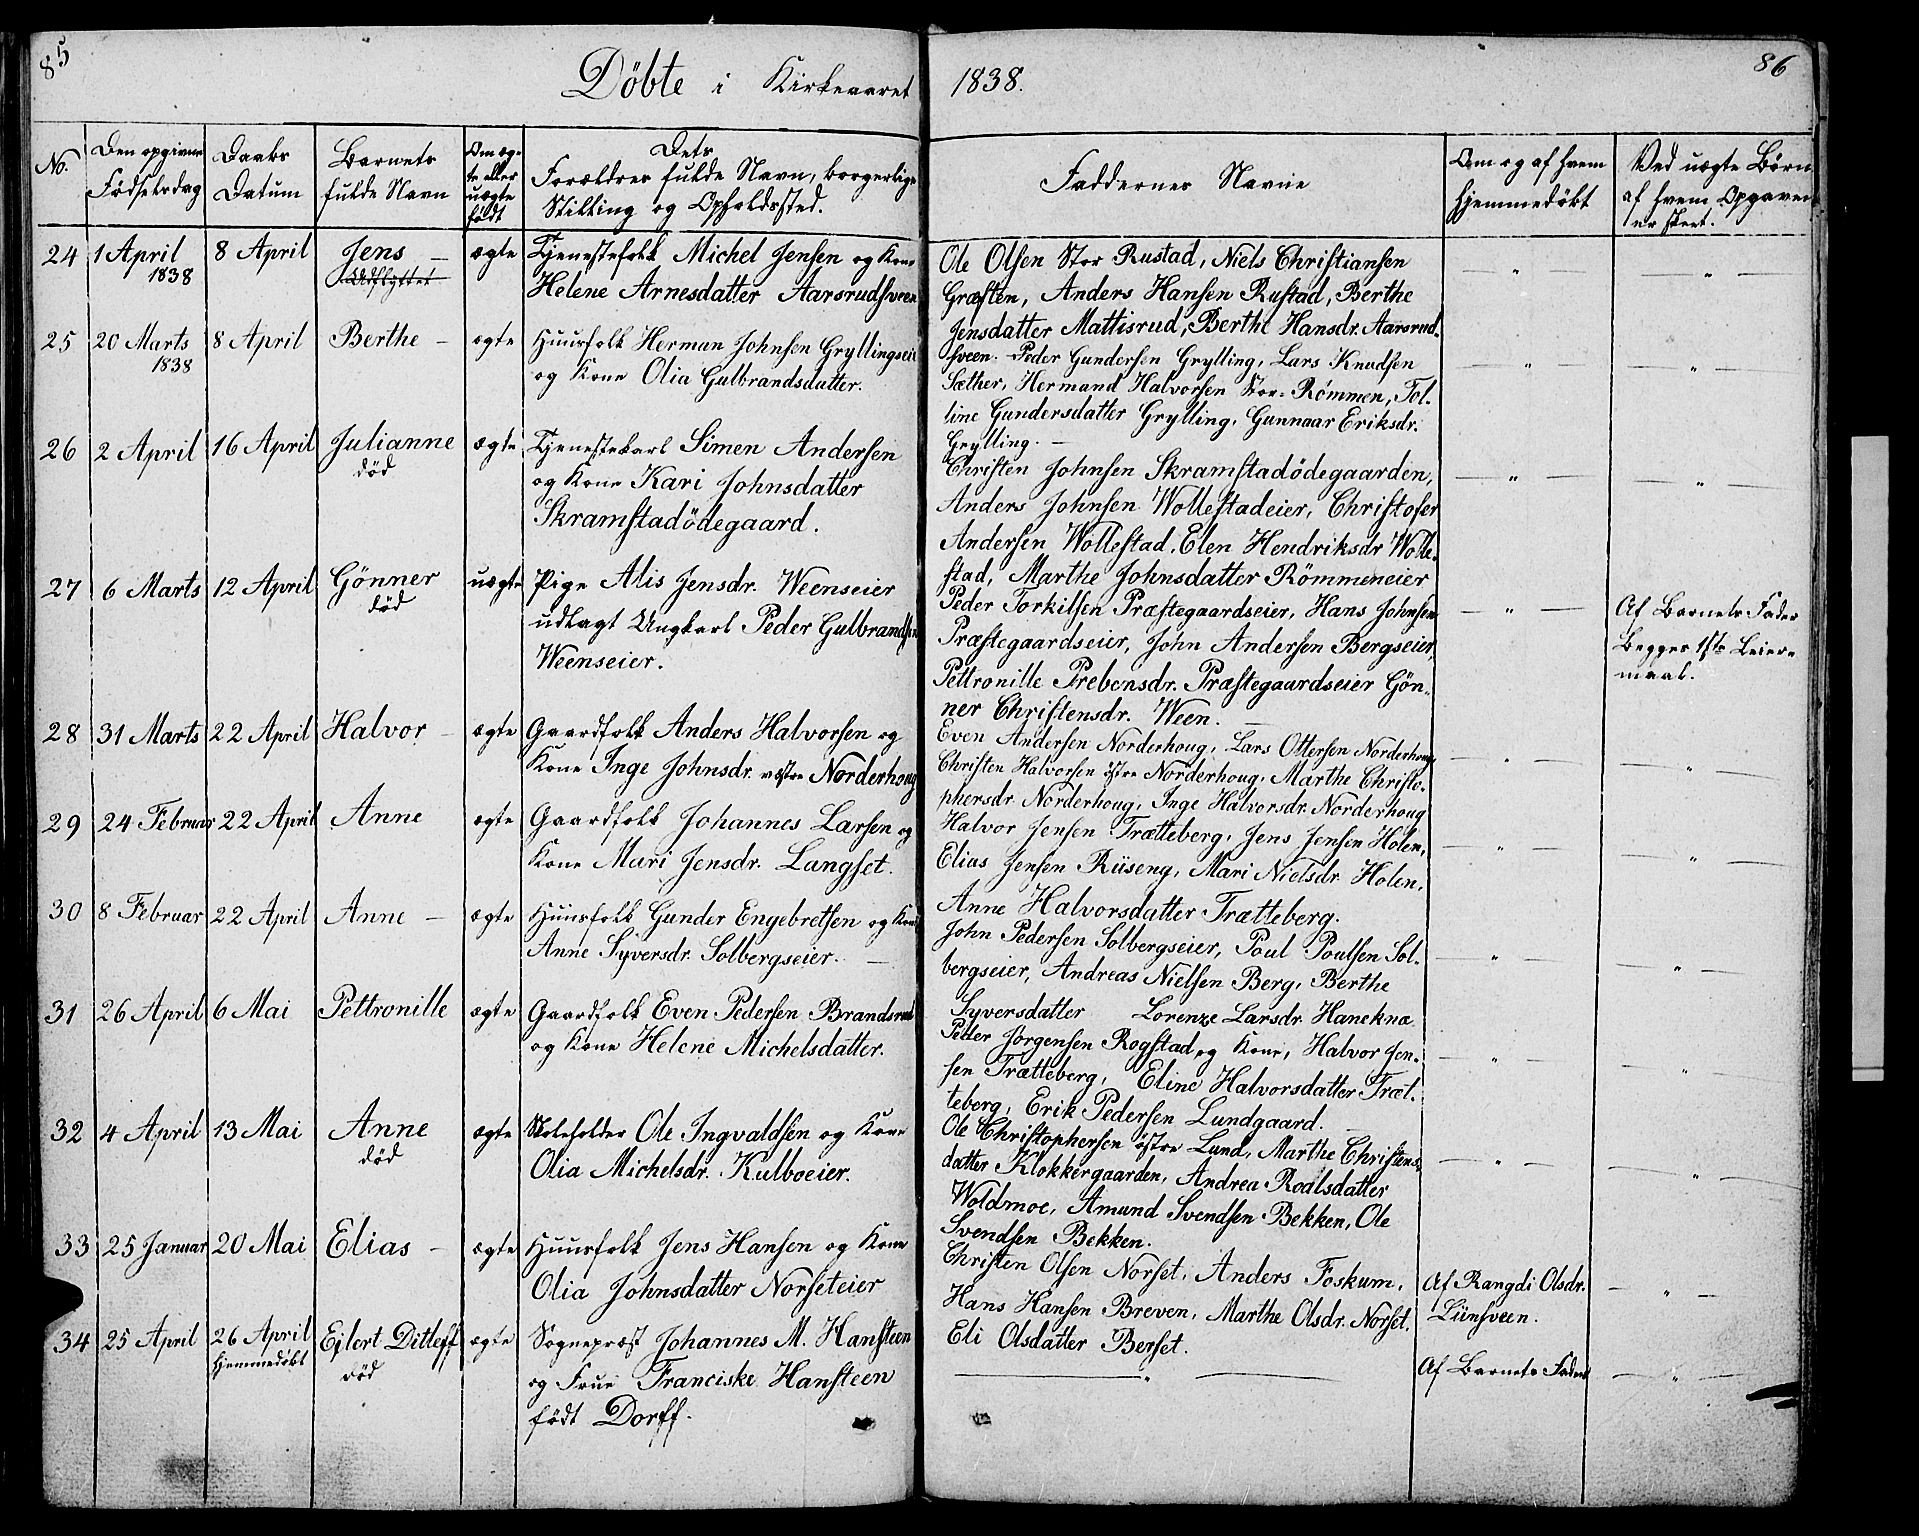 85
Döbte i Kirkeaaret 1838.
86
No.
Den opgivne Fødselsdag
Daabs Datum
Barnets fulde Navn
Om ægte eller uægte født
Dets Forældres fulde Navn, borgerlige Stilling og Opholdssted.
Faddernes Navne
Om og af hvem hjemmedøbt
Ved uægte Børn af hvem Opgaven er skeet.
24 1 April 1838 8 April Jens – Udflyttet ægte
Tjenestefolk Michel Jensen og Kone
Helene Arnesdatter Aarsrudsveen
Ole Olsen Stor Rustad, Niels Christiansen
Græsten, Anders Hansen Rustad, Berthe
Jensdatter Mattisrud, Berthe Hansdr. Aarsrud-
sveen.
25 20 Marts 1838 8 April Berthe – ægte
Huusfolk Herman Johnsen Gryllingseie
og Kone Olia Gulbrandsdatter.
Peder Gundersen Grylling, Lars Knudsen
Sæther, Hermand Halvorsen Stor-Römmen, Tol-
line Gundersdatter Grylling, Gunnaar Eriksdr.
Grylling. –
26 2 April 16 April Julianne død ægte
Tjenestekarl Simen Andersen
og Kone Kari Johnsdatter
Skramstadödegaard.
Christen Johnsen Skramstadödegaarden,
Anders Johnsen Wollestadeier, Christofer
Andersen Wollestad, Elen Hendriksdr Wolle-
stad, Marthe Johnsdatter Römmeneier
27 6 Marts 12 April Gönner død uægte
Pige Alis Jensdr. Weenseier
udlagt Ungkarl Peder Gulbrandsen
Weenseier.
Peder Torkilsen Præstegaardseier, Hans Johnsen
Præstegaardseier, John Andersen Bergseier,
Pettronille Prebensdr. Præstegaardseier Gön-
ner Christensdr. Ween. –
Af Barnets Fader
Begges 1ste Leier-
maal.
28 31 Marts 22 April Halvor – ægte
Gaardfolk Anders Halvorsen og
Kone Inge Johnsdr. vestre Norderhoug
Even Andersen Norderhoug, Lars Ottersen Norderhoug,
Christen Halvorsen östre Norderhoug, Marthe Christo-
phersdr Norderhoug, Inge Halvorsdr. Norderhoug
29 24 Februar 22 April Anne ægte
Gaardfolk Johannes Larsen og
Kone Mari Jensdr. Langset.
Halvor Jensen Trætteberg, Jens Jensen Holen,
Elias Jensen Rüseng, Mari Nielsdr. Holen,
Anne Halvorsdatter Trætteberg.
30 8 Februar 22 April Anne – ægte
Huusfolk Gunder Engebretsen og Kone
Anne Syversdr. Solbergseier. –
John Pedersen Solbergseier, Poul Poulsen Sol-
bergseier, Andreas Nielsen Berg, Berthe
Syversdatter Lorenze Larsdr. Hanekna
31 26 April 6 Mai Pettronille ægte
Gaardfolk Even Pedersen Brandsrud
og Kone Helene Michelsdatter.
Peder Jörgensen Rogstad og Kone, Halvor Jen-
sen Trætteberg, Eline Halvorsdatter Træt-
teberg, Erik Pedersen Lundgaard.
32 4 April 13 Mai Anne død ægte
Skoleholder Ole Ingvaldsen og Kone
Olia Michelsdr. Kulboeier.
Ole Christophersen östre Lund, Marthe Christens-
datter Klokkergaarden, Andrea Roalsdatter
Woldmoe, Amund Svendsen Bekken, Ole
Svendsen Bekken.
33 25 Januar 20 Mai Elias – ægte
Huusfolk Jens Hansen og Kone
Olia Johnsdatter Norseteier
Christen Olsen Norset, Anders Foskum,
Hans Hansen Breven, Marthe Olsdr. Norset,
Eli Olsdatter Berset.
Af Rangdi Olsdr.
Lünsveen.
34 25 April 26 April hjemmedøbt Ejlert Ditleff død ægte
Sognepræst Johannes M. Hansteen
og Frue Franciske Hansteen
født Dorff.
Af Barnets Fader